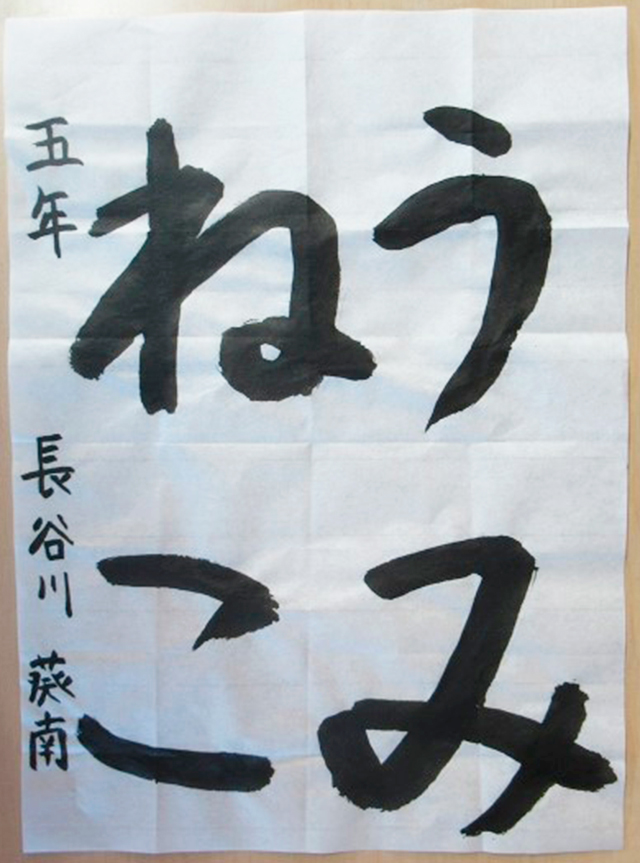 うみ
ねこ
五年 長谷川 葵南